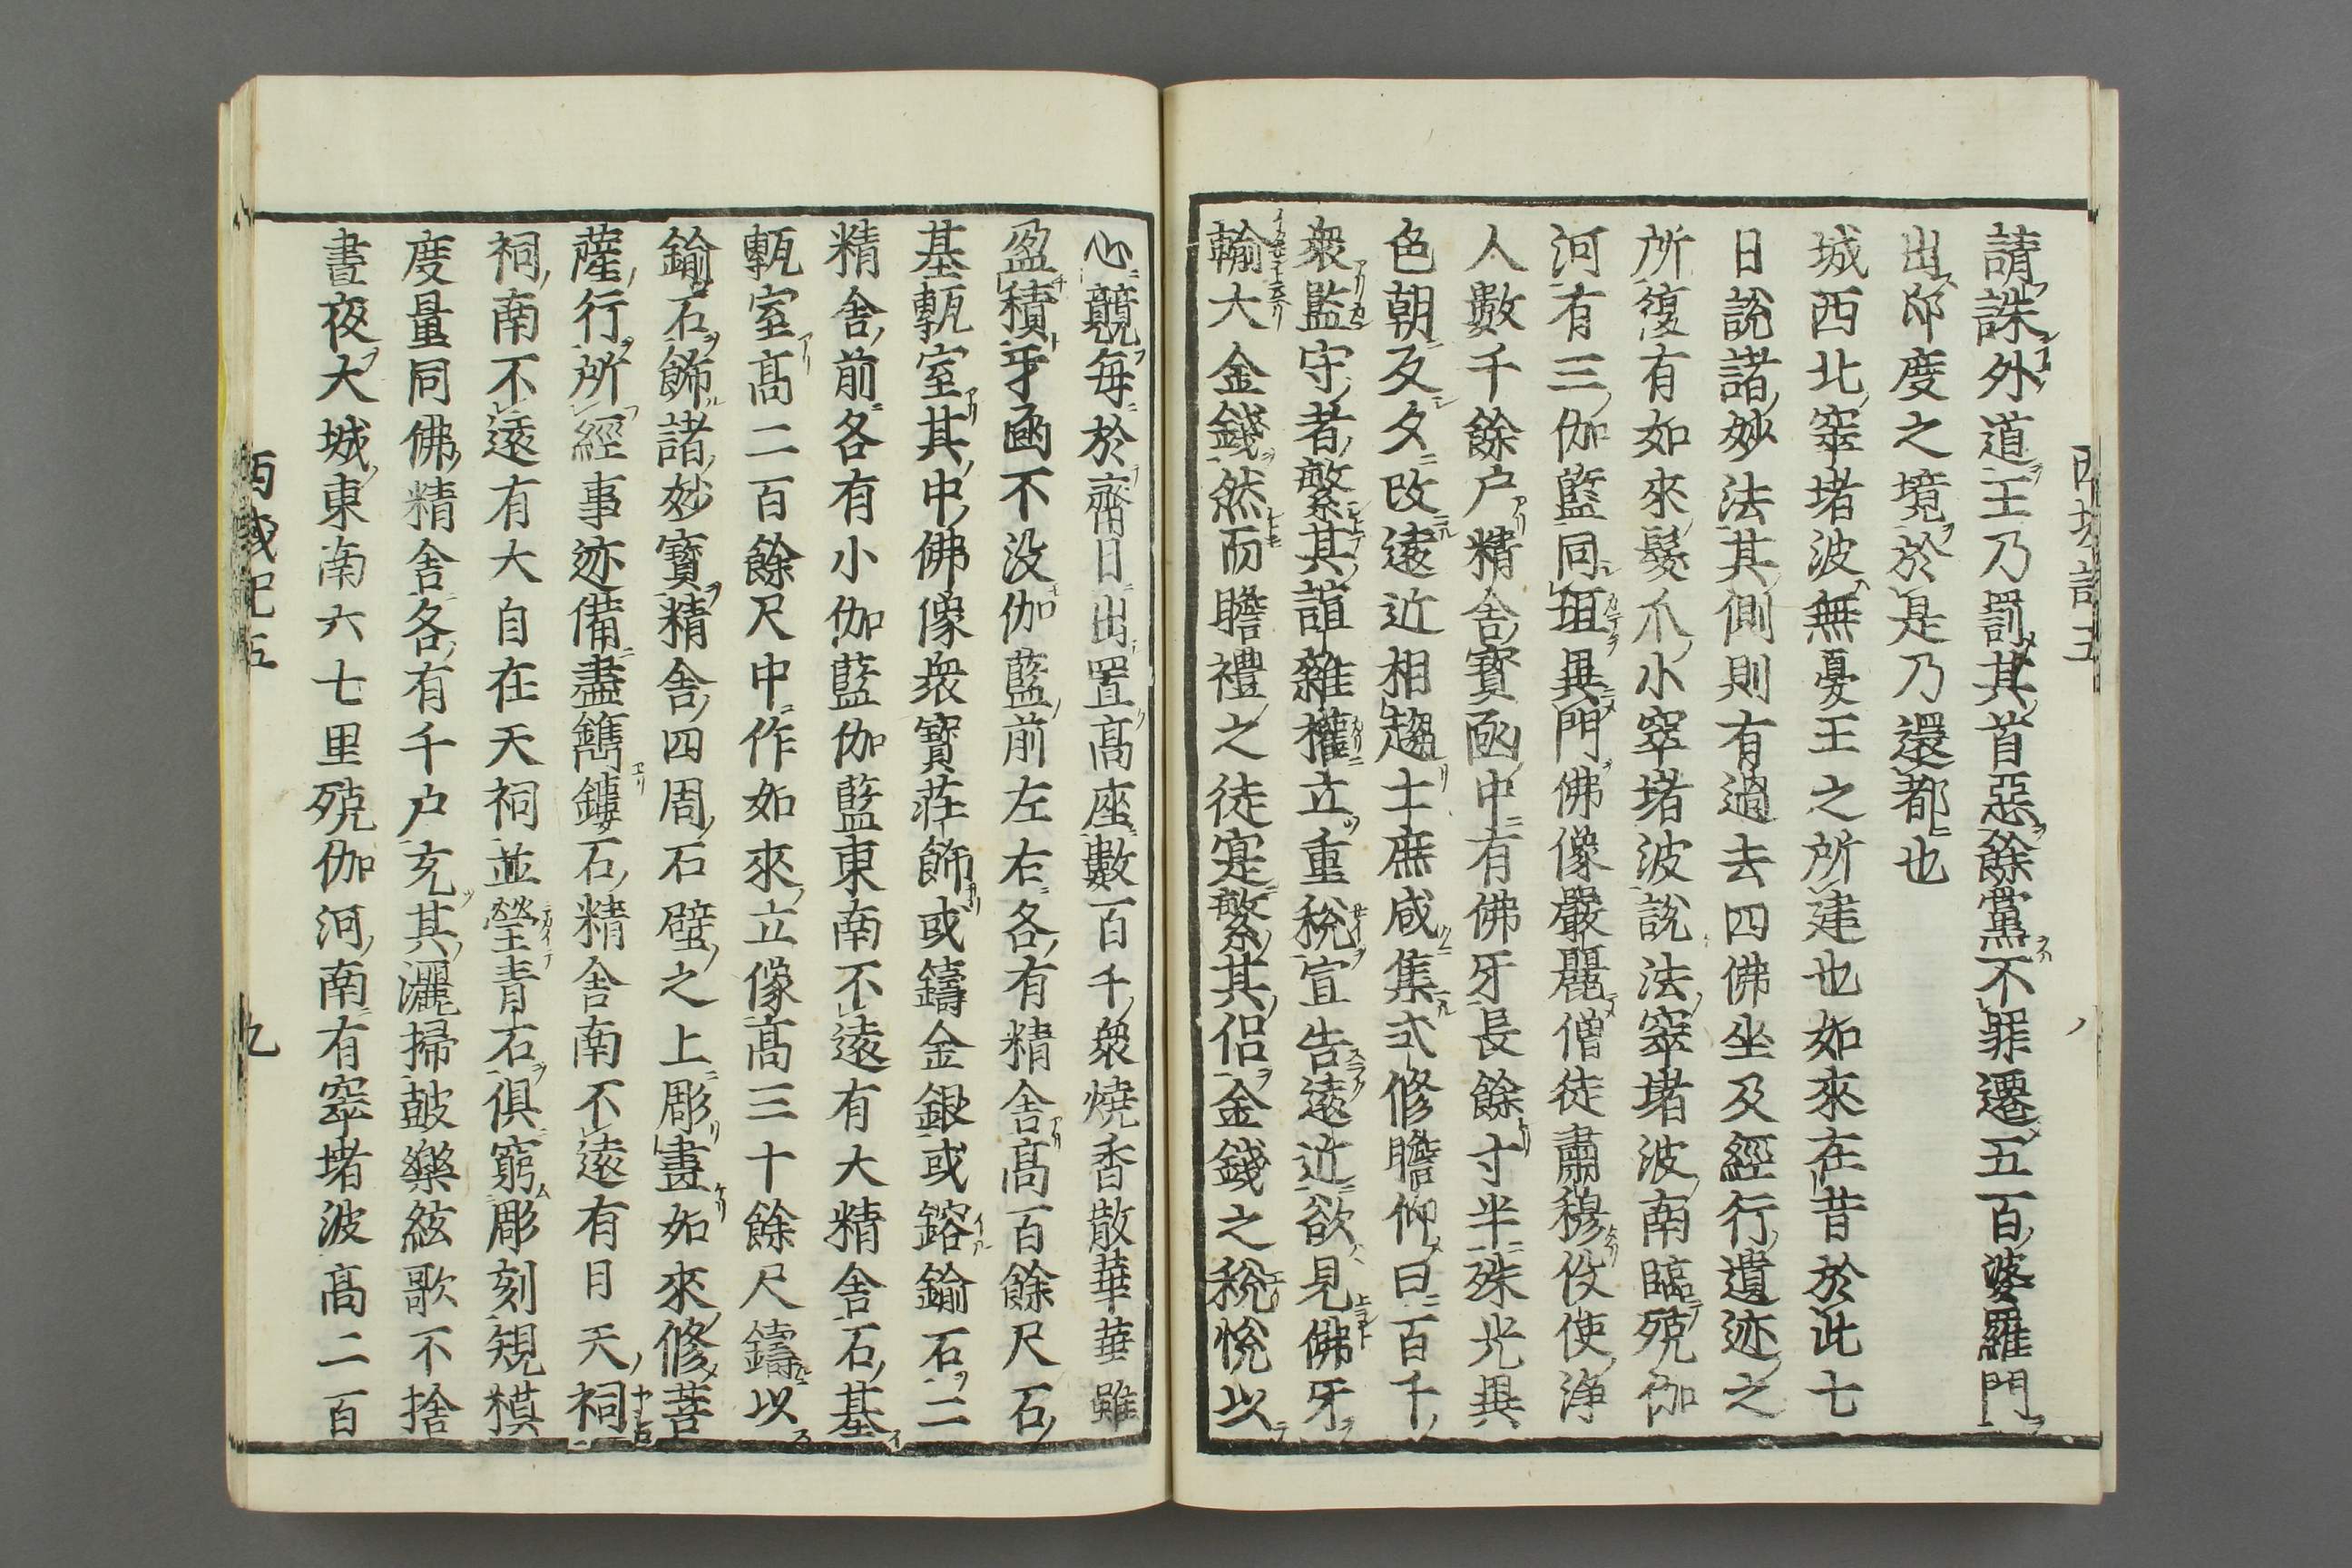 請誅外道王乃罰其首惡餘黨不罪遷五百婆羅門
出印度之境於是乃還都也
城西北窣堵波無憂王之所建也如來在昔於此七
日說諸妙法其側則有過去四佛坐及經行遺迹之
所復有如來髮爪小窣堵波說法窣堵波南臨殑伽
河有三伽藍同垣異門佛像嚴麗僧徒肅穆役使淨
人數千餘户精舍寶函中有佛牙長餘寸半殊光異
色朝変夕改遠近相趨士庶咸集式修瞻仰日百千
衆監守者繁其諠雜權立重稅宣告遠近欲見佛牙
輸大金錢然而瞻禮之徒寔繁其侣金錢之稅悅以
西域記五
八
心競每於齋日出置高座數百千衆燒香散華華雖
盈積牙函不没伽藍前左右各有精舍高百餘尺石
基甎室其中佛像衆寳莊飾或鑄金銀或鎔鍮石二
精舍前各有小伽藍伽藍東南不遠有大精舍石基
甎室高二百餘尺中作如來立像高三十餘尺鑄以
鍮石飾諸妙寶精舍四周石壁之上彫畫如來修菩
薩行所經事迹備盡鐫鏤石精舍南不遠有日天祠
祠南不遠有大自在天祠並瑩青石俱窮彫刻規模
度量同佛精舍各有千户充其灑掃鼓樂絃歌不捨
晝夜大城東南六七里殑伽河南有窣堵波高二百
西域記五
九